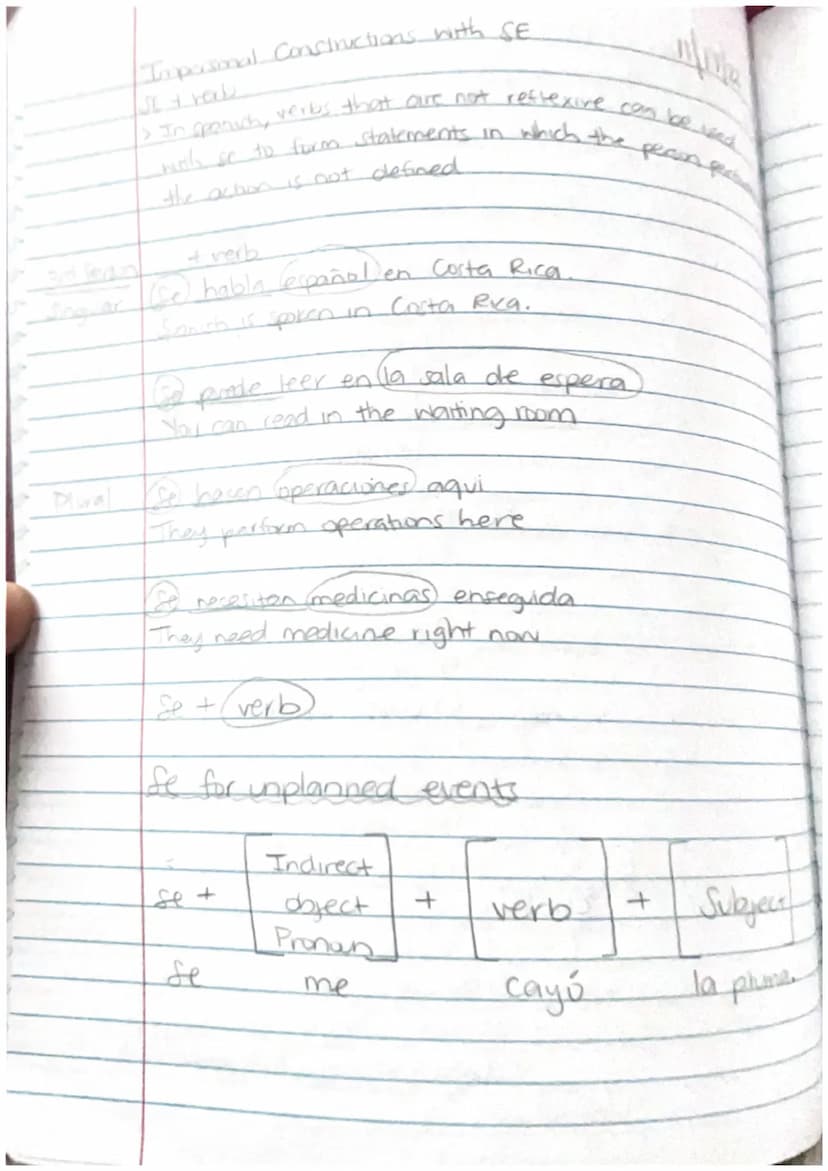 Impersonal Constructions with SE
SE + verb
> In spanish, verbs that are not reflexive can be used
with se to form statements in which the person
the action is not defined
+ verb
3rd Person
Singular
Se habla español en Costa Rica.
Spanish is spoken in Costa Rica.
Se puede leer en la sala de espera
You can read in the waiting room
Plural
Se hacen operaciones aqui
They perform operations here
Se necesitan medicinas enseguida
They need medicine right now
Se + verb
Se for unplanned events
se + [Indirect object Pronoun] + [verb] + [Subject]
Se me cayó la pluma.